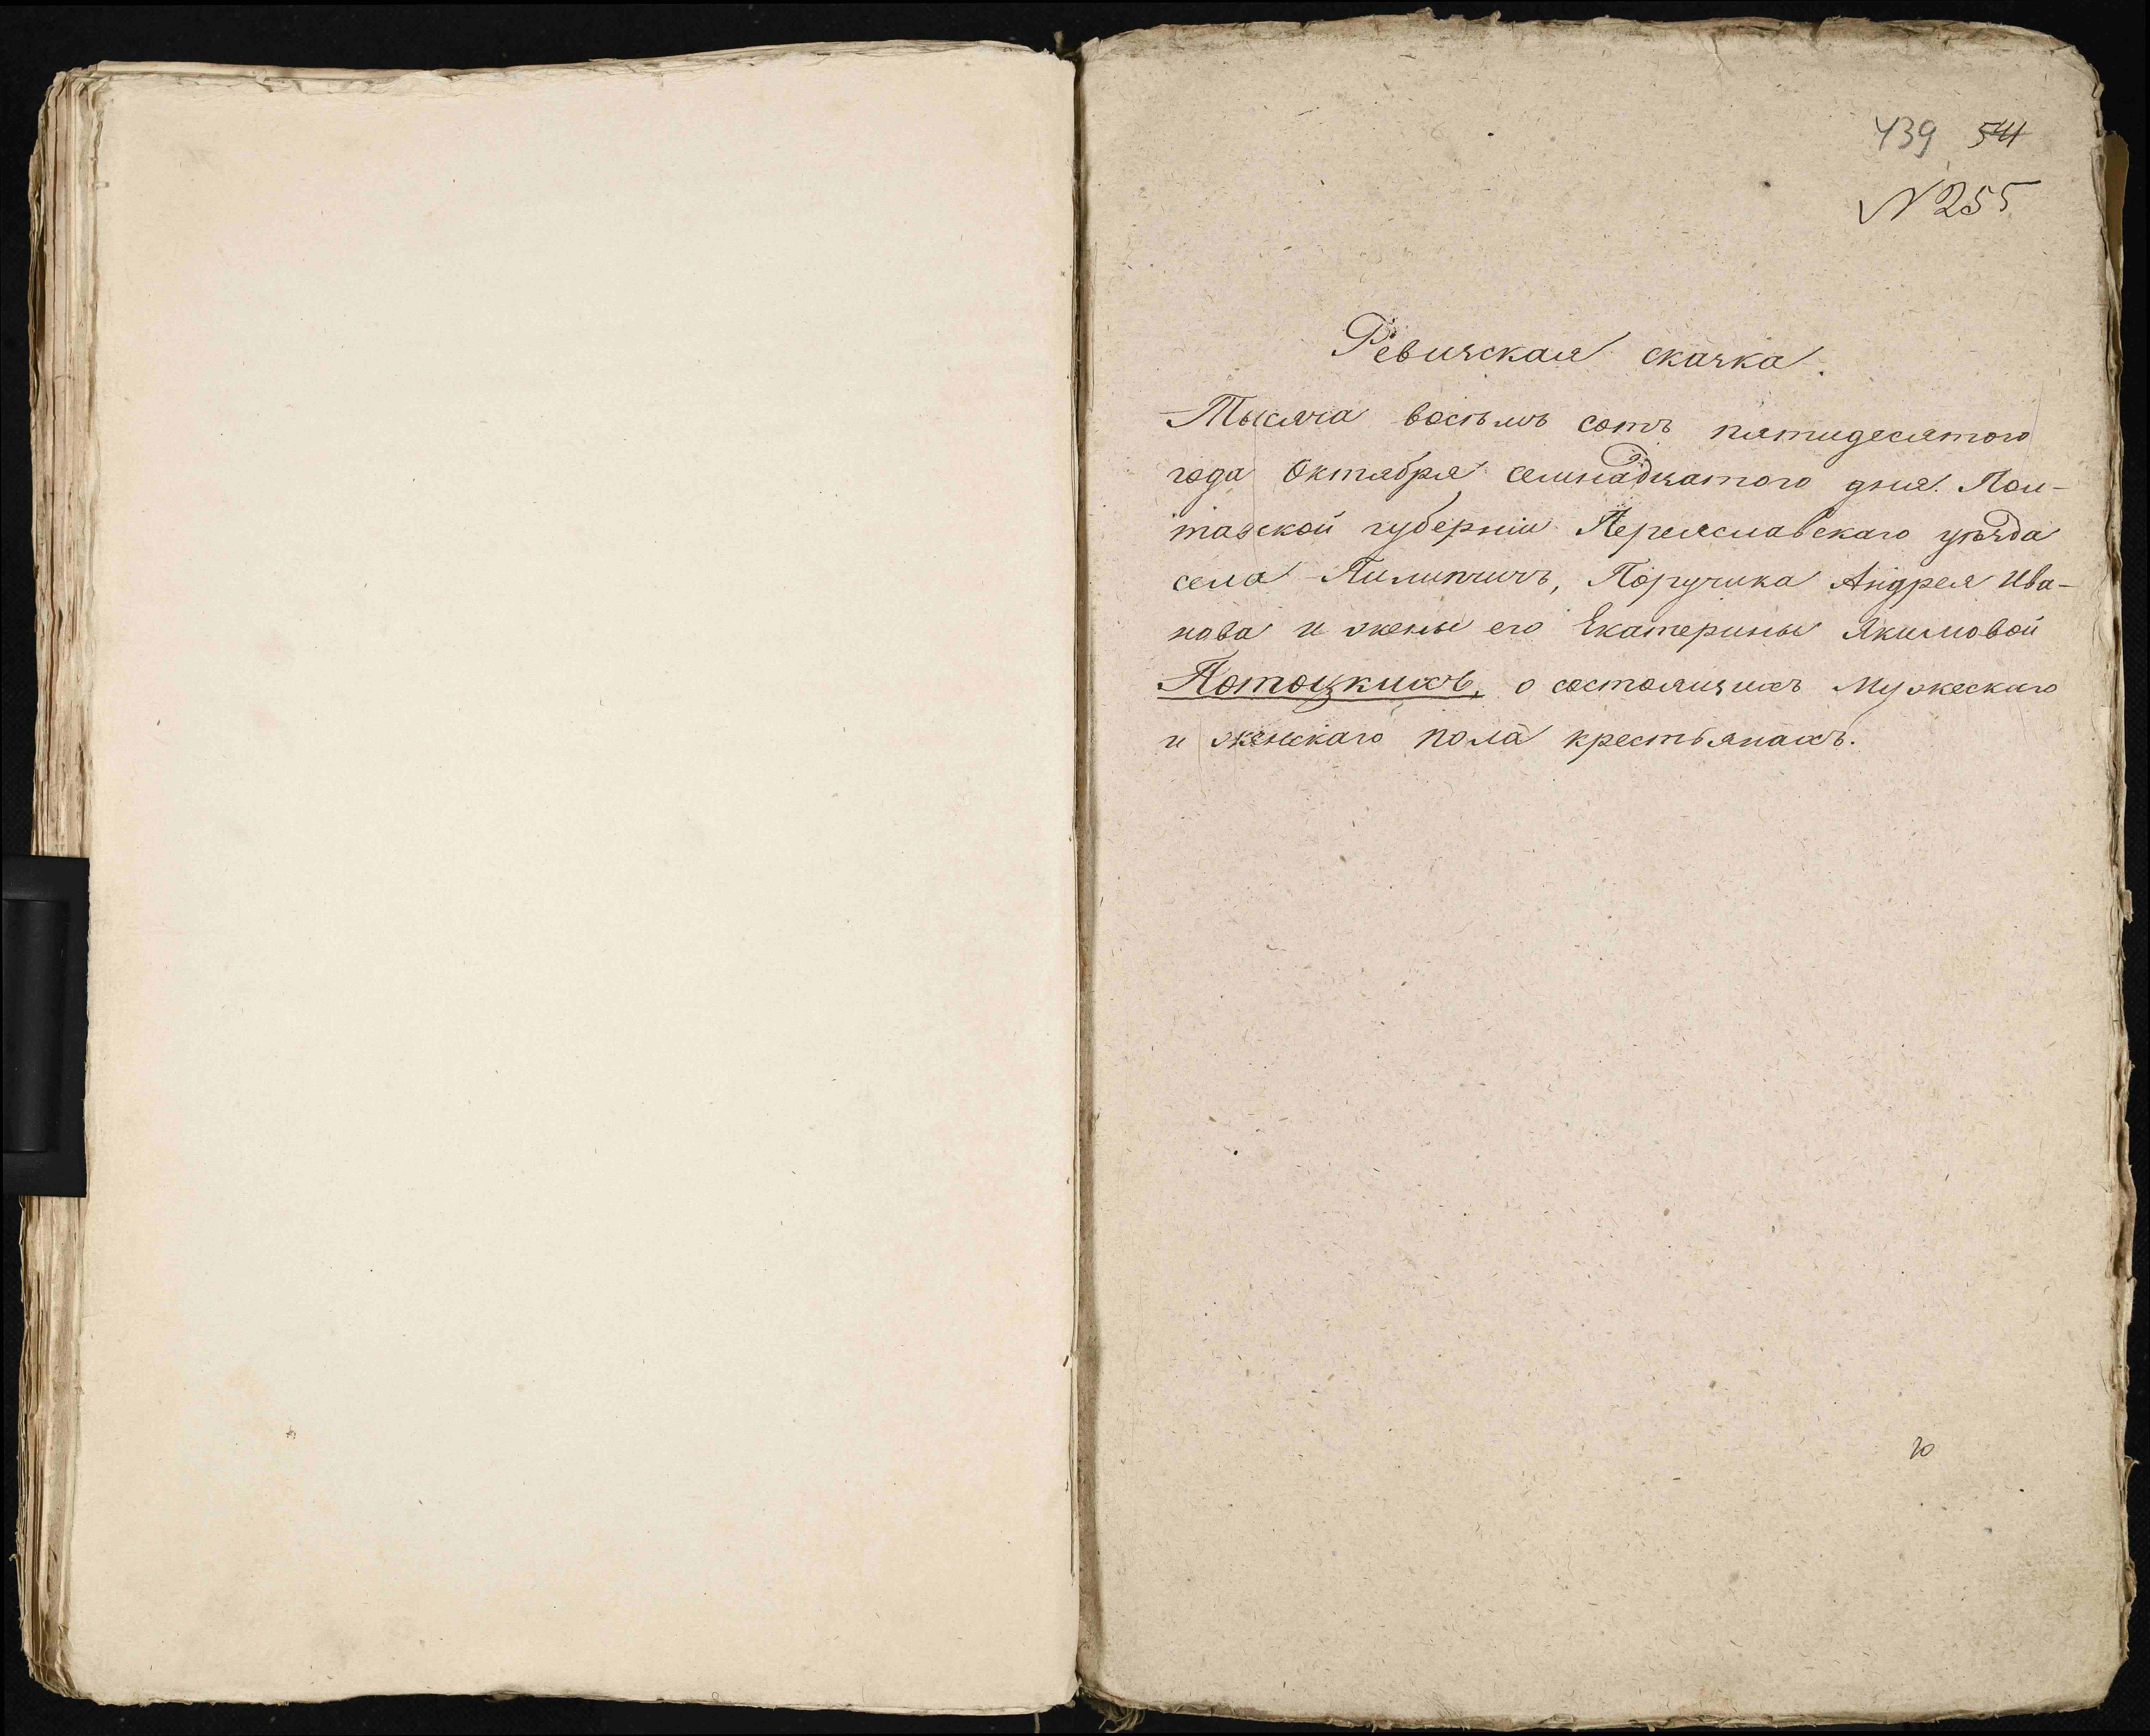 439 541
N 255
Ревизская сказка.
Тысяча восемь сотъ пятидесятого
года Октября семнадцатого дня. Пол-
тавской губерніи Переяславскаго уѣзда
села Пилипчичъ, Поручика Андрея Ива-
нова и жены его Екатерины Якимовой
Потоцкихъ, о состоящихъ мужескаго
и женскаго пола крестьянахъ.